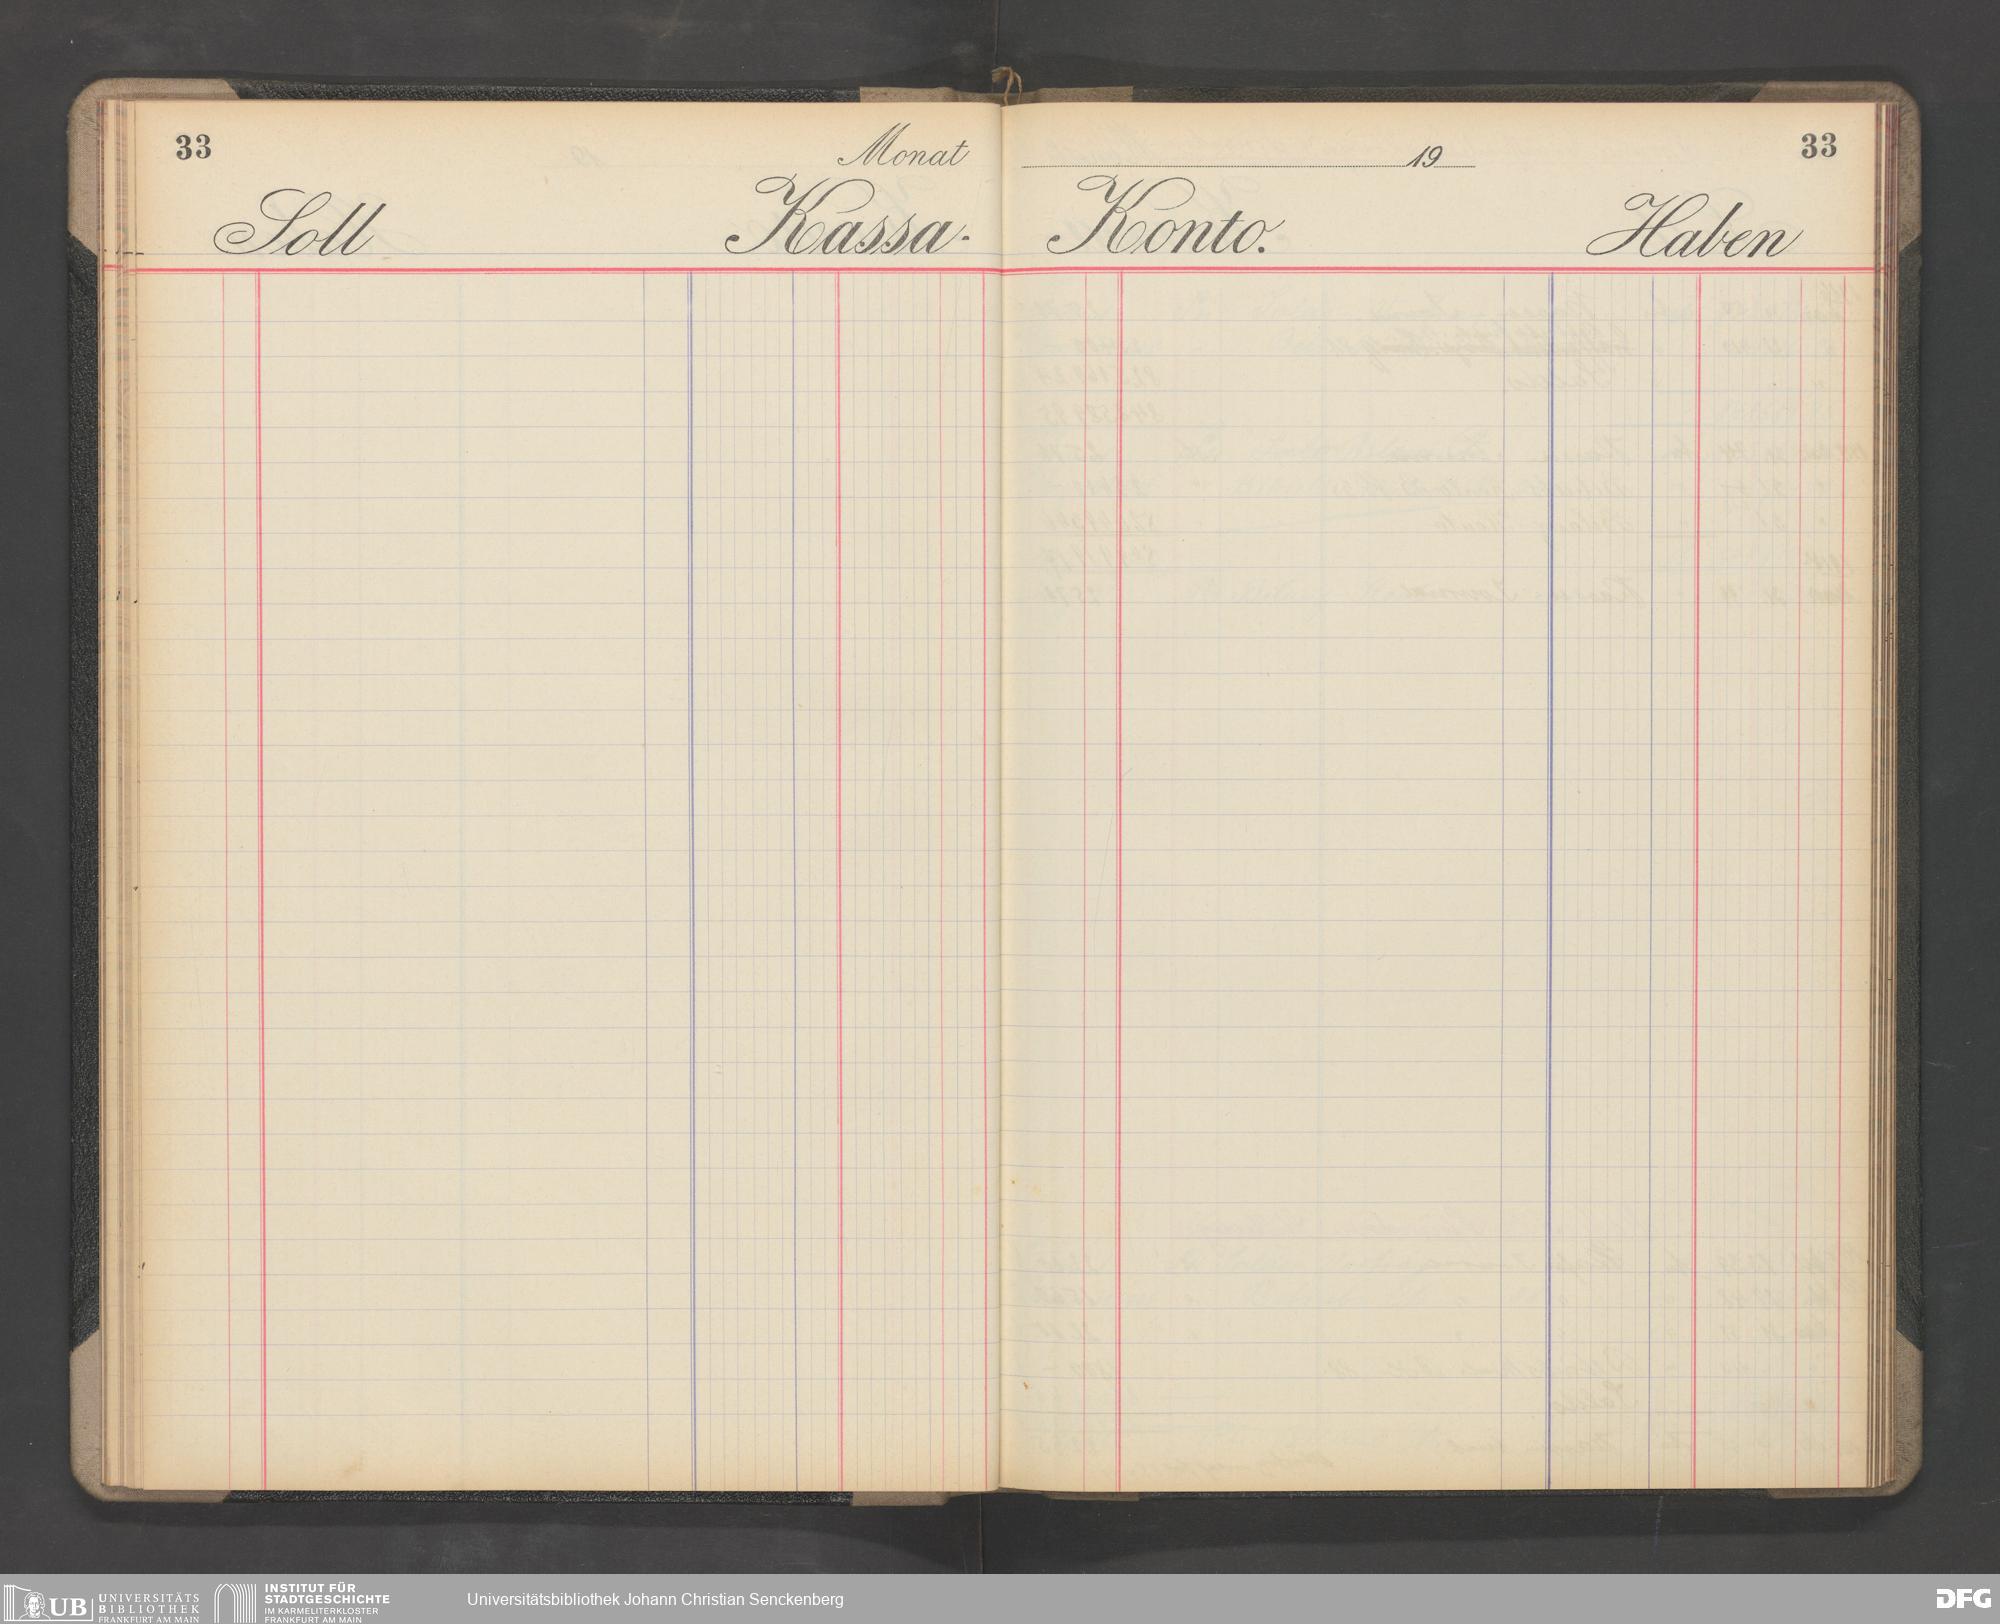 33 Monat 19 33
Soll Kassa- Konto. Haben
UB UNIVERSITÄTS
BIBLIOTHEK
FRANKFURT AM MAIN
INSTITUT FÜR
STADTGESCHICHTE
IM KARMELITERKLOSTER
FRANKFURT AM MAIN
Universitätsbibliothek Johann Christian Senckenberg
DFG